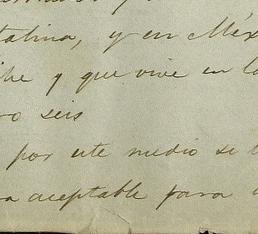 talina, y en Méx
y que vive en la
ro seis
por este medio se
aceptable para